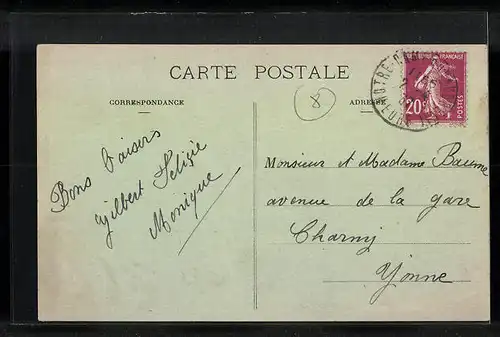 CARTE POSTALE
CORRESPONDANCE
ADRESSE
8
20c
POSTES
NOTRE-DAM
Bons baisers
Gilbert Félizie
Monique
Monsieur et Madame Baume
avenue de la gare
Charny
Yonne